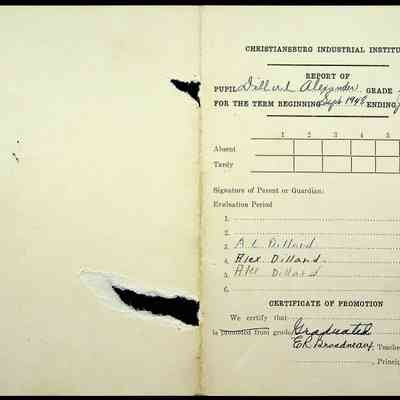 CHRISTIANSBURG INDUSTRIAL INSTITU
REPORT OF
PUPIL Dillard Alexander GRADE
FOR THE TERM BEGINNING Sept 1948 ENDING
1 2 3 4 5
Absent
Tardy
Signature of Parent or Guardian:
Evaluation Period
1.
2.
3. A L Dillard
4. Alex Dillard
5. Alex Dillard
6.
CERTIFICATE OF PROMOTION
We certify that Graduated
is promoted from grade
E.R. Broadneaux, Teache
, Princip